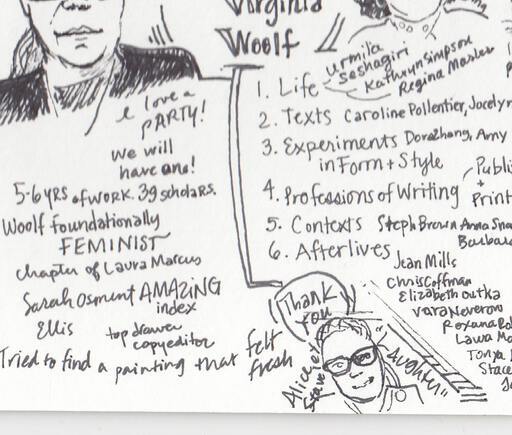 Virginia
Woolf
I love a
PARTY!
We will
have one!
5-6 yrs of work. 39 scholars.
Woolf foundationally
FEMINIST
chapter of Laura Marcus
Sarah Osment AMAZING
index
Ellis
top drawer
copyeditor
Tried to find a painting that felt
fresh
1. Life
Urmila
Seshagiri
Kathryn Simpson
Regina Marler
2. Texts Caroline Pollentier, Jocelyn
3. Experiments Dora Zhang, Amy
in Form + Style
4. Professions of Writing
Publi
+
Print
5. Contexts Steph Brown Anna Sna
Barbara
6. Afterlives
Jean Mills
Chris Coffman
Elizabeth Outka
Vara Neverow
Roxana
Laura Ma
Tonya
Stace
Thank
You
Alice